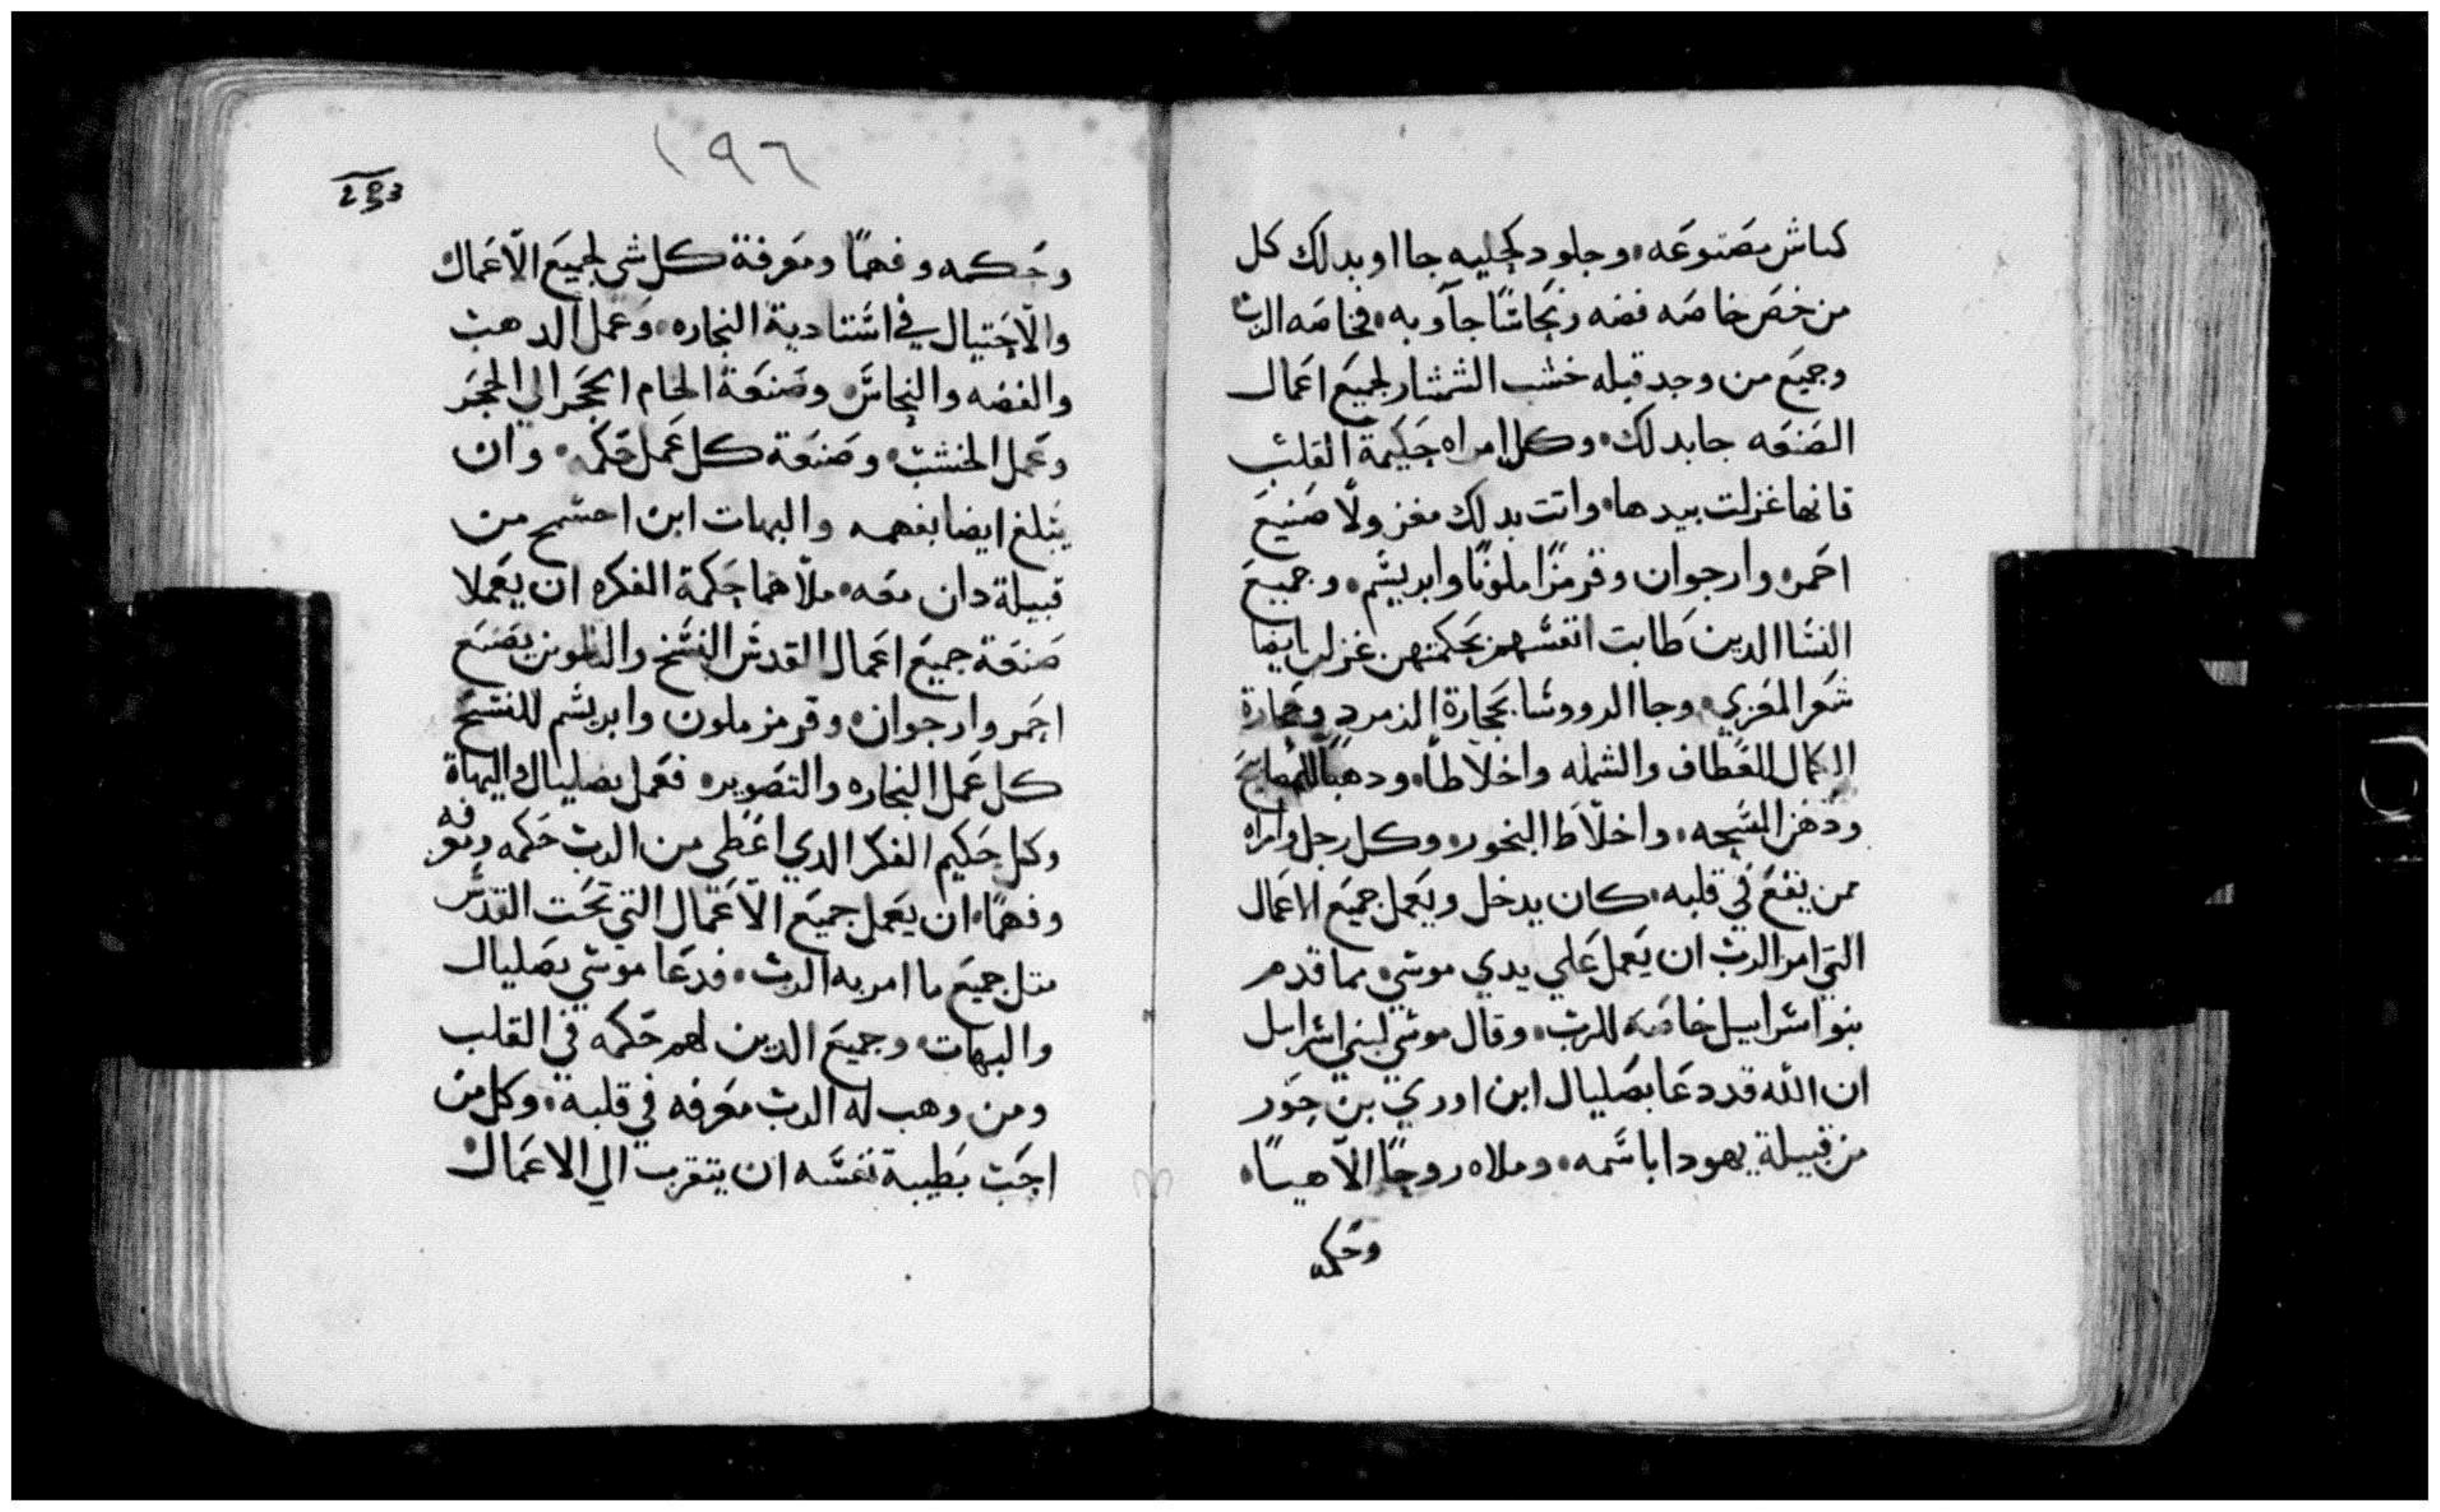 كباش مصنوعه وجلود كحليه جااو بدلك كل
من خص خاصه فضه ونحاسًا جآو به فخاصه الرب
وجميع من وجد قبله خشب الشمشار لجميع اعمال
الصنعه جا بدلك وكل امراه حكيمة القلب
فانها غزلت بيدها واتت بدلك مغزولًا صنيع
احمر وارجوان وقرمزًا ملونًا وابريشم وجميع
النسا الدين طابت انفسهن بحكمتهن غزلن ايضا
شعر المعزي وجا الرووسا بحجارة الزمرد وحجارة
الكمال للعطاف والشمله واخلاطًا ودهبًا للمصابيح
ودهن المسحه واخلاط البخور وكل رجل وامراه
ممن يقع في قلبه كان يدخل ويعمل جميع الاعمال
التي امر الرب ان يعمل علي يدي موسي مما قدم
بنو اسراييل خاصه للرب وقال موسي لبني اسراييل
ان الله قد دعا بصليال ابن اوري بن حور
من قبيلة يهودا باسمه وملاه روحًا الاهيًا
وحكمه
١٩٦
293
وحكمه وفهمًا ومعرفة كل شي لجميع الاعمال
والاحتيال في استادية النجاره وعمل الدهب
والفضه والنحاس وصنعة الحام الحجر الي الحجر
وعمل الخشب وصنعة كل عمل حكمه وان
يبلغ ايضا بفهمه واليهات ابن احسمح من
قبيلة دان معه ملاهما حكمة الفكره ان يعملا
صنعة جميع اعمال القدس النسخ والملون بصنع
احمر وارجوان وقرمز ملون وابريشم للنسج
كل عمل النجاره والتصوير فعمل بصليال واليهاة
وكل حكيم الفكر الدي اعطي من الرب حكمه ومعرفه
وفهمًا ان يعمل جميع الاعمال التي تحت القدس
متل جميع ما امر به الرب فدعا موسي بصليال
واليهات وجميع الدين لهم حكمه في القلب
ومن وهب له الرب معرفه في قلبه وكل من
احب بطيبة نفسه ان يتقرب الي الاعمال